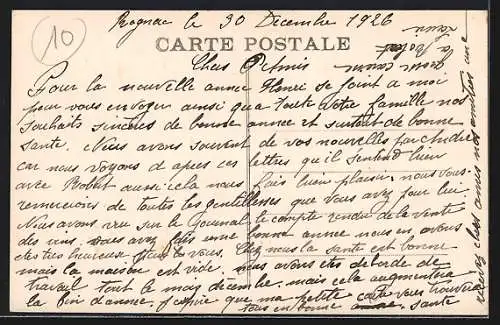 10
Rognac le 30 Décembre 1926
CARTE POSTALE
Chers Amis
Pour la nouvelle année Henri se joint a moi
pour vous envoyer ainsi qu a toute votre famille nos
souhaits sincères de bonne année et surtout de bonne
sante. Nous avons souvent de vos nouvelles par Andre
car nous voyons d apres ces lettres qu il s'entend bien
avec Robert aussi cela nous fais bien plaisir, nous vous
remercions de toutes les gentillesses que vous avez pour lui.
Nous avons vu sur le journal le compte rendu de la vente
des vins vous avez fais une bonne annee nous en avons
etes tres heureux pour vous. Chez nous la sante est bonne
mais la maison est vide, nous avons etes deborde de
travail tout le mois decembre. mais cela augmentera
la fin d'annee. J'espere que ma petite carte vous trouvera
tous en bonne sante
recevez chers amis nos amities